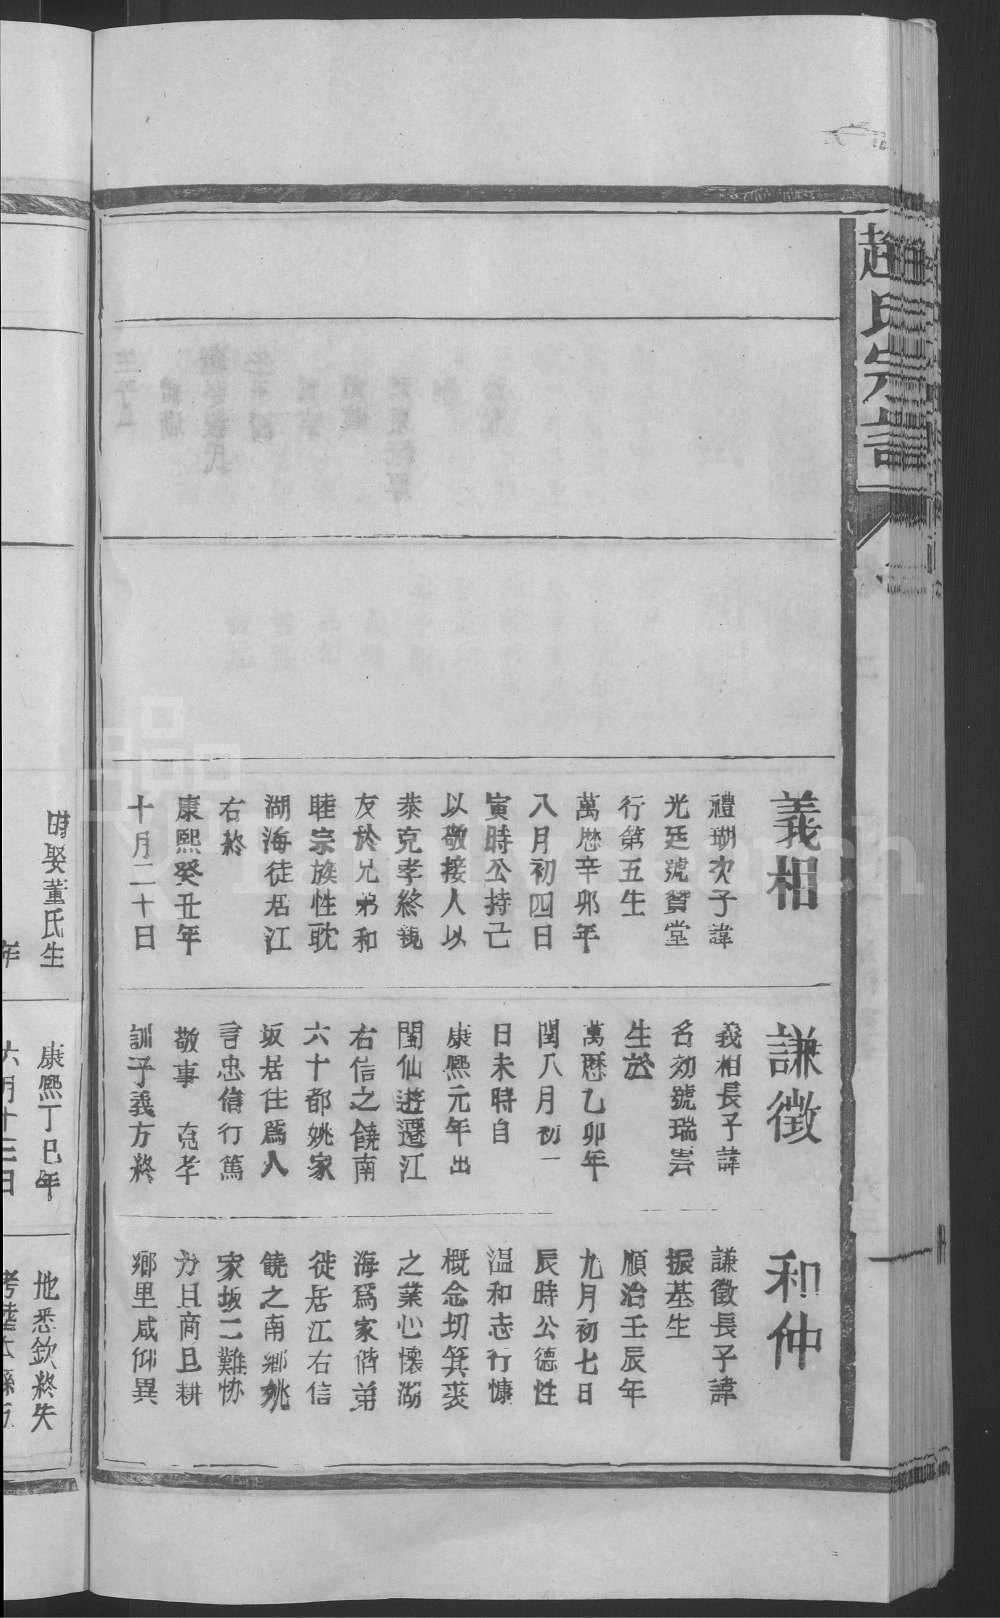 趙氏宗譜
義相
禮瑚次子諱
光廷號賀堂
行第五生
萬歷辛卯年
八月初四日
寅時公持己
以敬接人以
恭克孝終親
友於兄弟和
睦宗族性耽
湖海徒居江
右終
康熙癸丑年
十月二十日
謙徵
義相長子諱
名効號瑞雲
生於
萬歷乙卯年
閏八月初一
日未時自
康熙元年出
閩仙遊遷江
右信之饒南
六十都姚家
坂居住為人
言忠信行篤
敬事 克孝
訓子義方終
和仲
謙徵長子諱
振基生
順治壬辰年
九月初七日
辰時公德性
溫和志行慷
概念切箕裘
之業心懷湖
海爲家偕弟
徙居江右信
饒之南鄉姚
家坂二難協
力且商且耕
鄉里咸仰異
時娶董氏生
年
康熙丁巳年
六月十三日
他悉欽終失